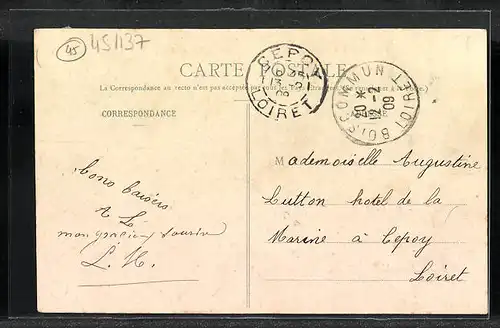 45 45/137
CARTE POSTALE
La Correspondance au recto n'est pas acceptée par tous les pays étrangers
CORRESPONDANCE
CEPOY
13 -2
09
LOIRET
BOISCOMMUN LOIRET
20 *
12 -2
09
Mademoiselle Augustine
Lutton hotel de la
Marine à Cepoy
Loiret
bons baisers
L
mon
L. H.